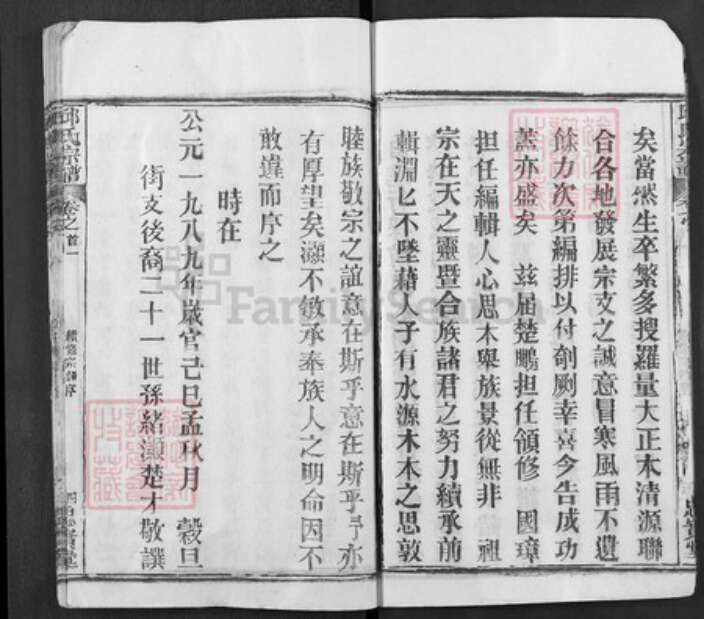 矣當然生卒繁多搜羅量大正本清源聯
合各地發展宗支之誠意冒寒風雨不遺
餘力次第編排以付剞劂幸喜今告成功
蓋亦盛矣 兹届楚鵬担任領修 國璋
担任編輯人心思木舉族景從無非 祖
宗在天之靈暨合族諸君之努力續承前
輯淵匕不墜藉人子有水源木本之思敦
睦族敬宗之誼意在斯乎意在斯乎予亦
有厚望矣灝不敏承奉族人之明命因不
敢違而序之
時在
公元一九八九年歲官己巳孟秋月 穀旦
街支後裔二十一世孫緒灝楚才敬譔
邱氏宗譜 卷之首一
續修宗譜序
FamilySearch